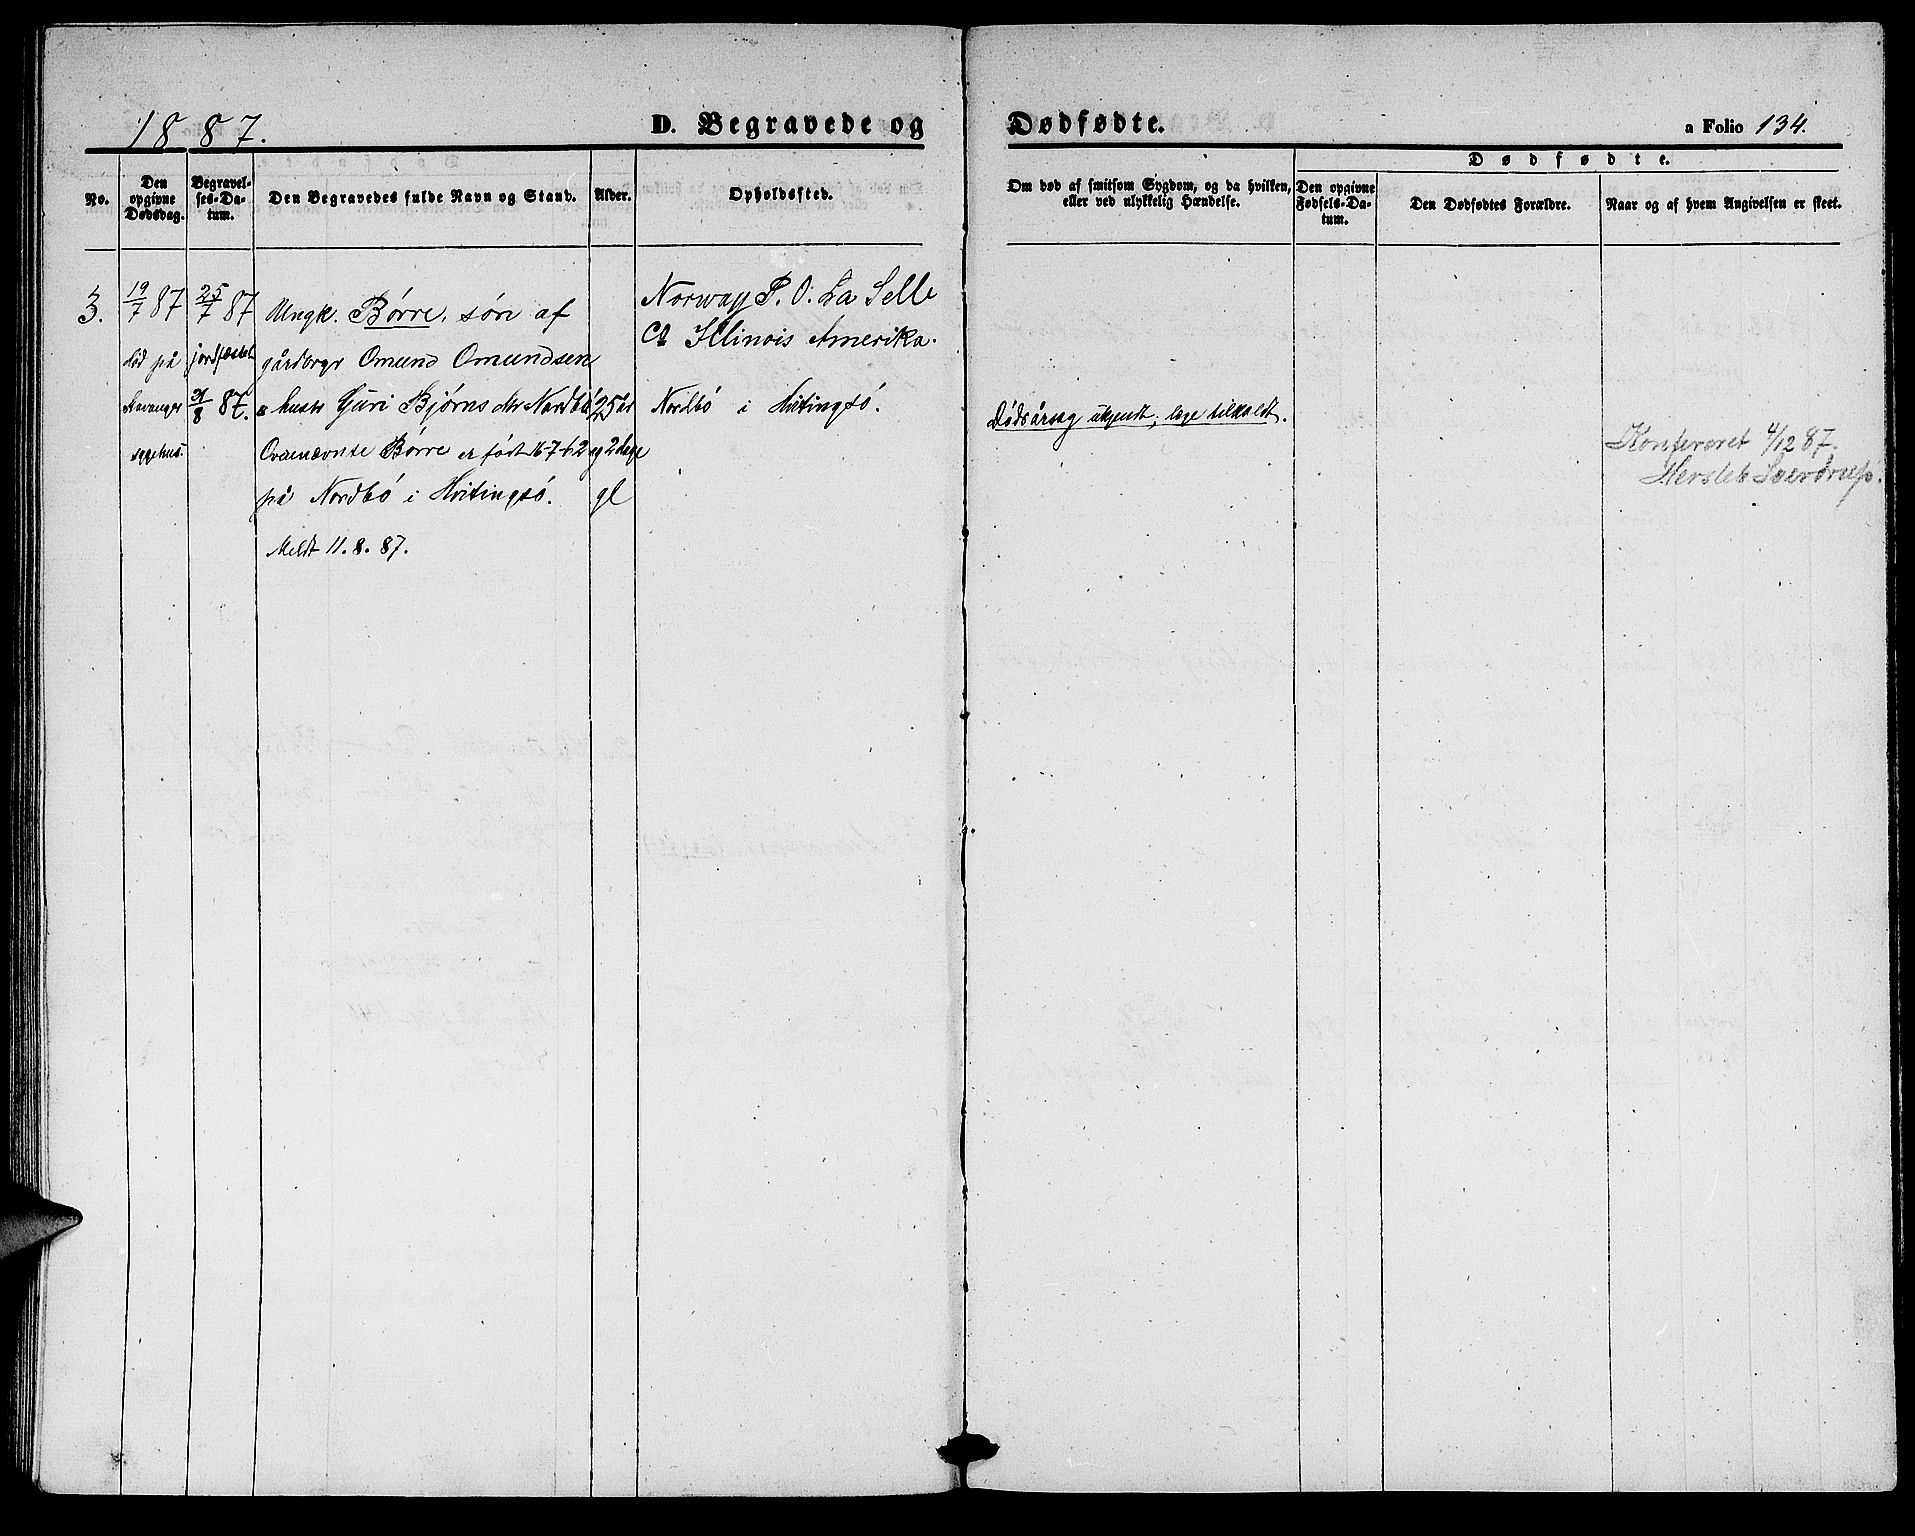 1887.
D. Begravede og Dødfødte.
a Folio 134.
No.
Den opgivne Dødsdag.
Begravelses-Datum.
Den Begravedes fulde Navn og Stand.
Alder.
Opholdssted.
Om død af smitsom Sygdom, og da hvilken,
eller ved ulykkelig Hændelse.
Dødfødte.
Den opgivne Fødsels-Datum.
Den Dødfødtes Forældre.
Naar og af hvem Angivelsen er skeet.
3.
19/7 87
død på
Stavanger
sygehus.
25/7 87
jordfæstet
21/8 87.
Ungk. Børre, søn af
gårdbrgr Omund Omundsen
& hustr Guri Bjørns dtr Nordbø
Ovennævnte Børre er født 16-7-62
på Nordbø i Hvitingsø.
Meldt 11.8.87.
25 år
og 2 dage
gl
Norway P.O. La Selle
Ct Illinois Amerika.
Nordbø i Hvitingsø.
Dødsårsag ukjendt; læge tilkaldt.
Konfereret 4/12 87.
Hersleb Sverdrup.